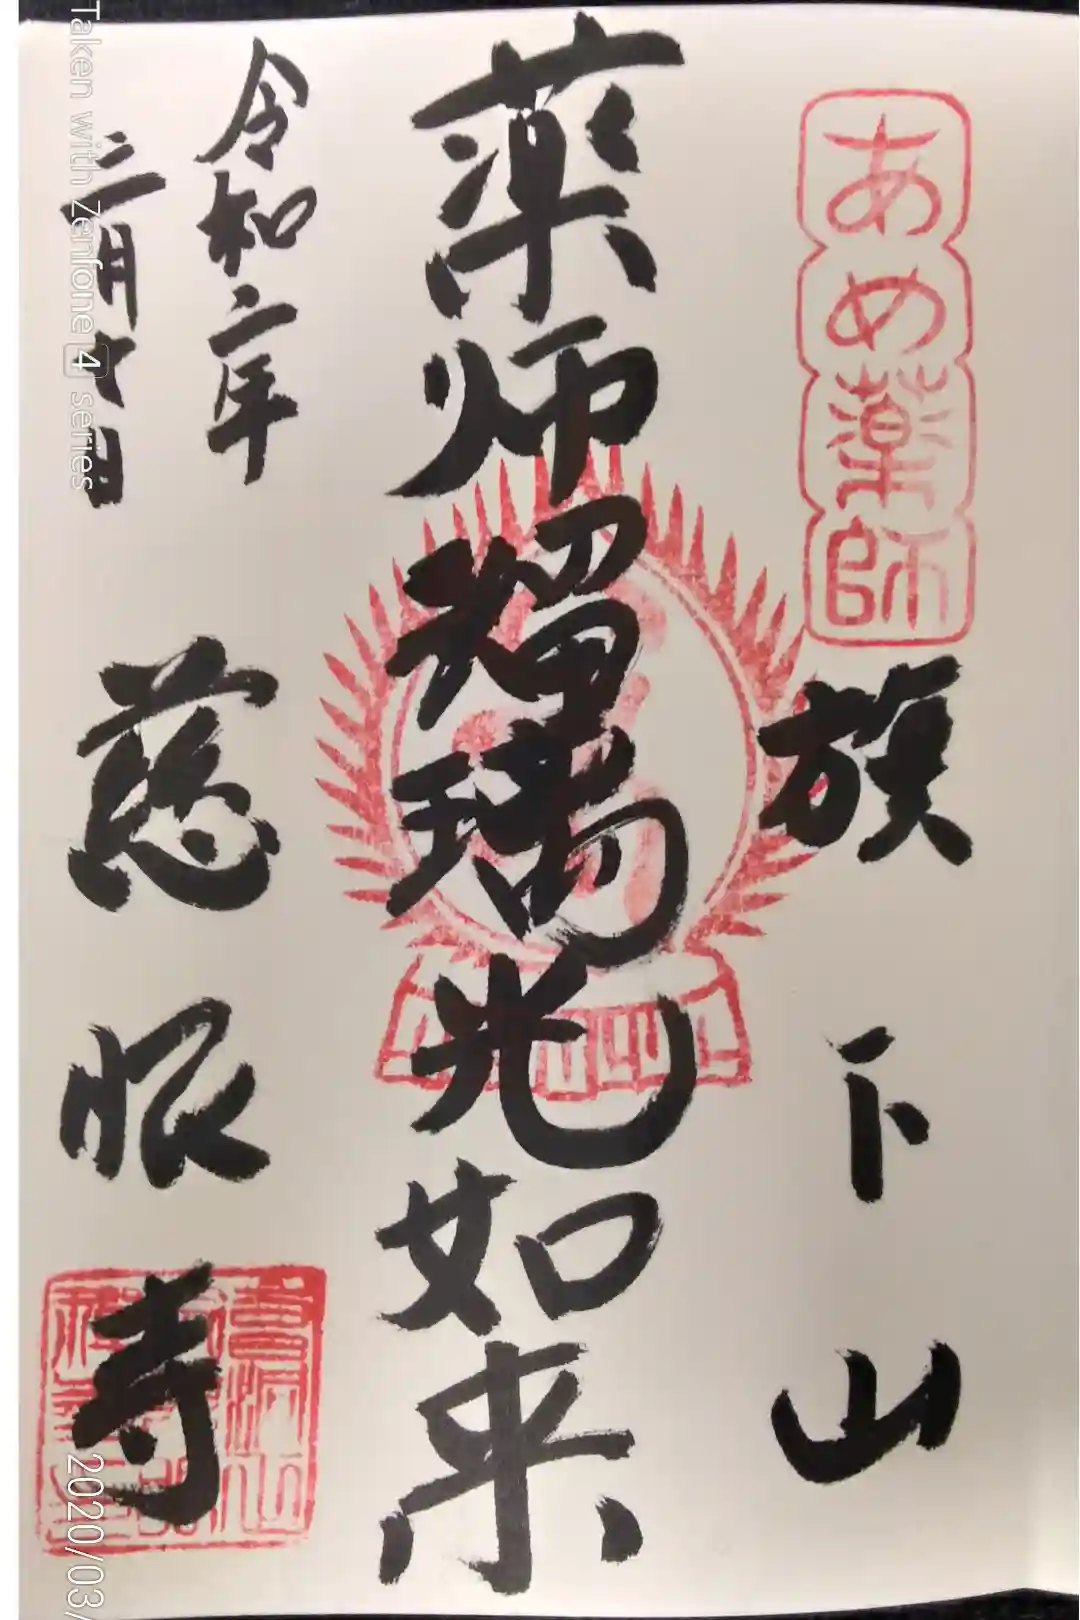 あめ薬師
旗下山
薬師瑠璃光如来
令和二年
三月七日
慈眼寺
Taken with Zenfone 4 series
2020/03/